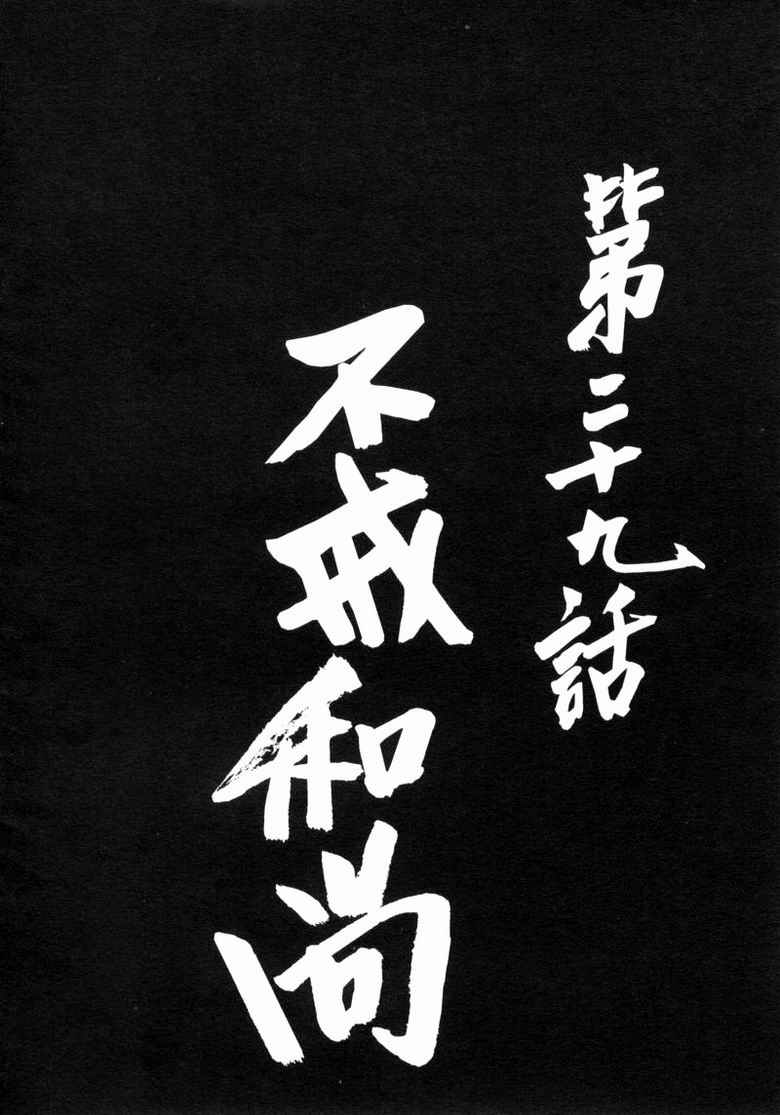 第二十九話
不戒和尚